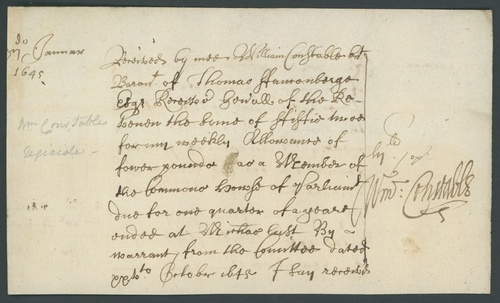 Januar
1645
Wm Constable
regicide
Received by mee William Constable
Baront of Thomas
Receivor Generall of the Re=
venew the some of fiftie twoe
for my weekly Allowance of
fower pounds as a Member of
the Commons howse of Parliamt
due for one quarter of a yeare
ended at Michas last By
warrant from the Comittee dated
October 1645 I say received
Wm: Constable